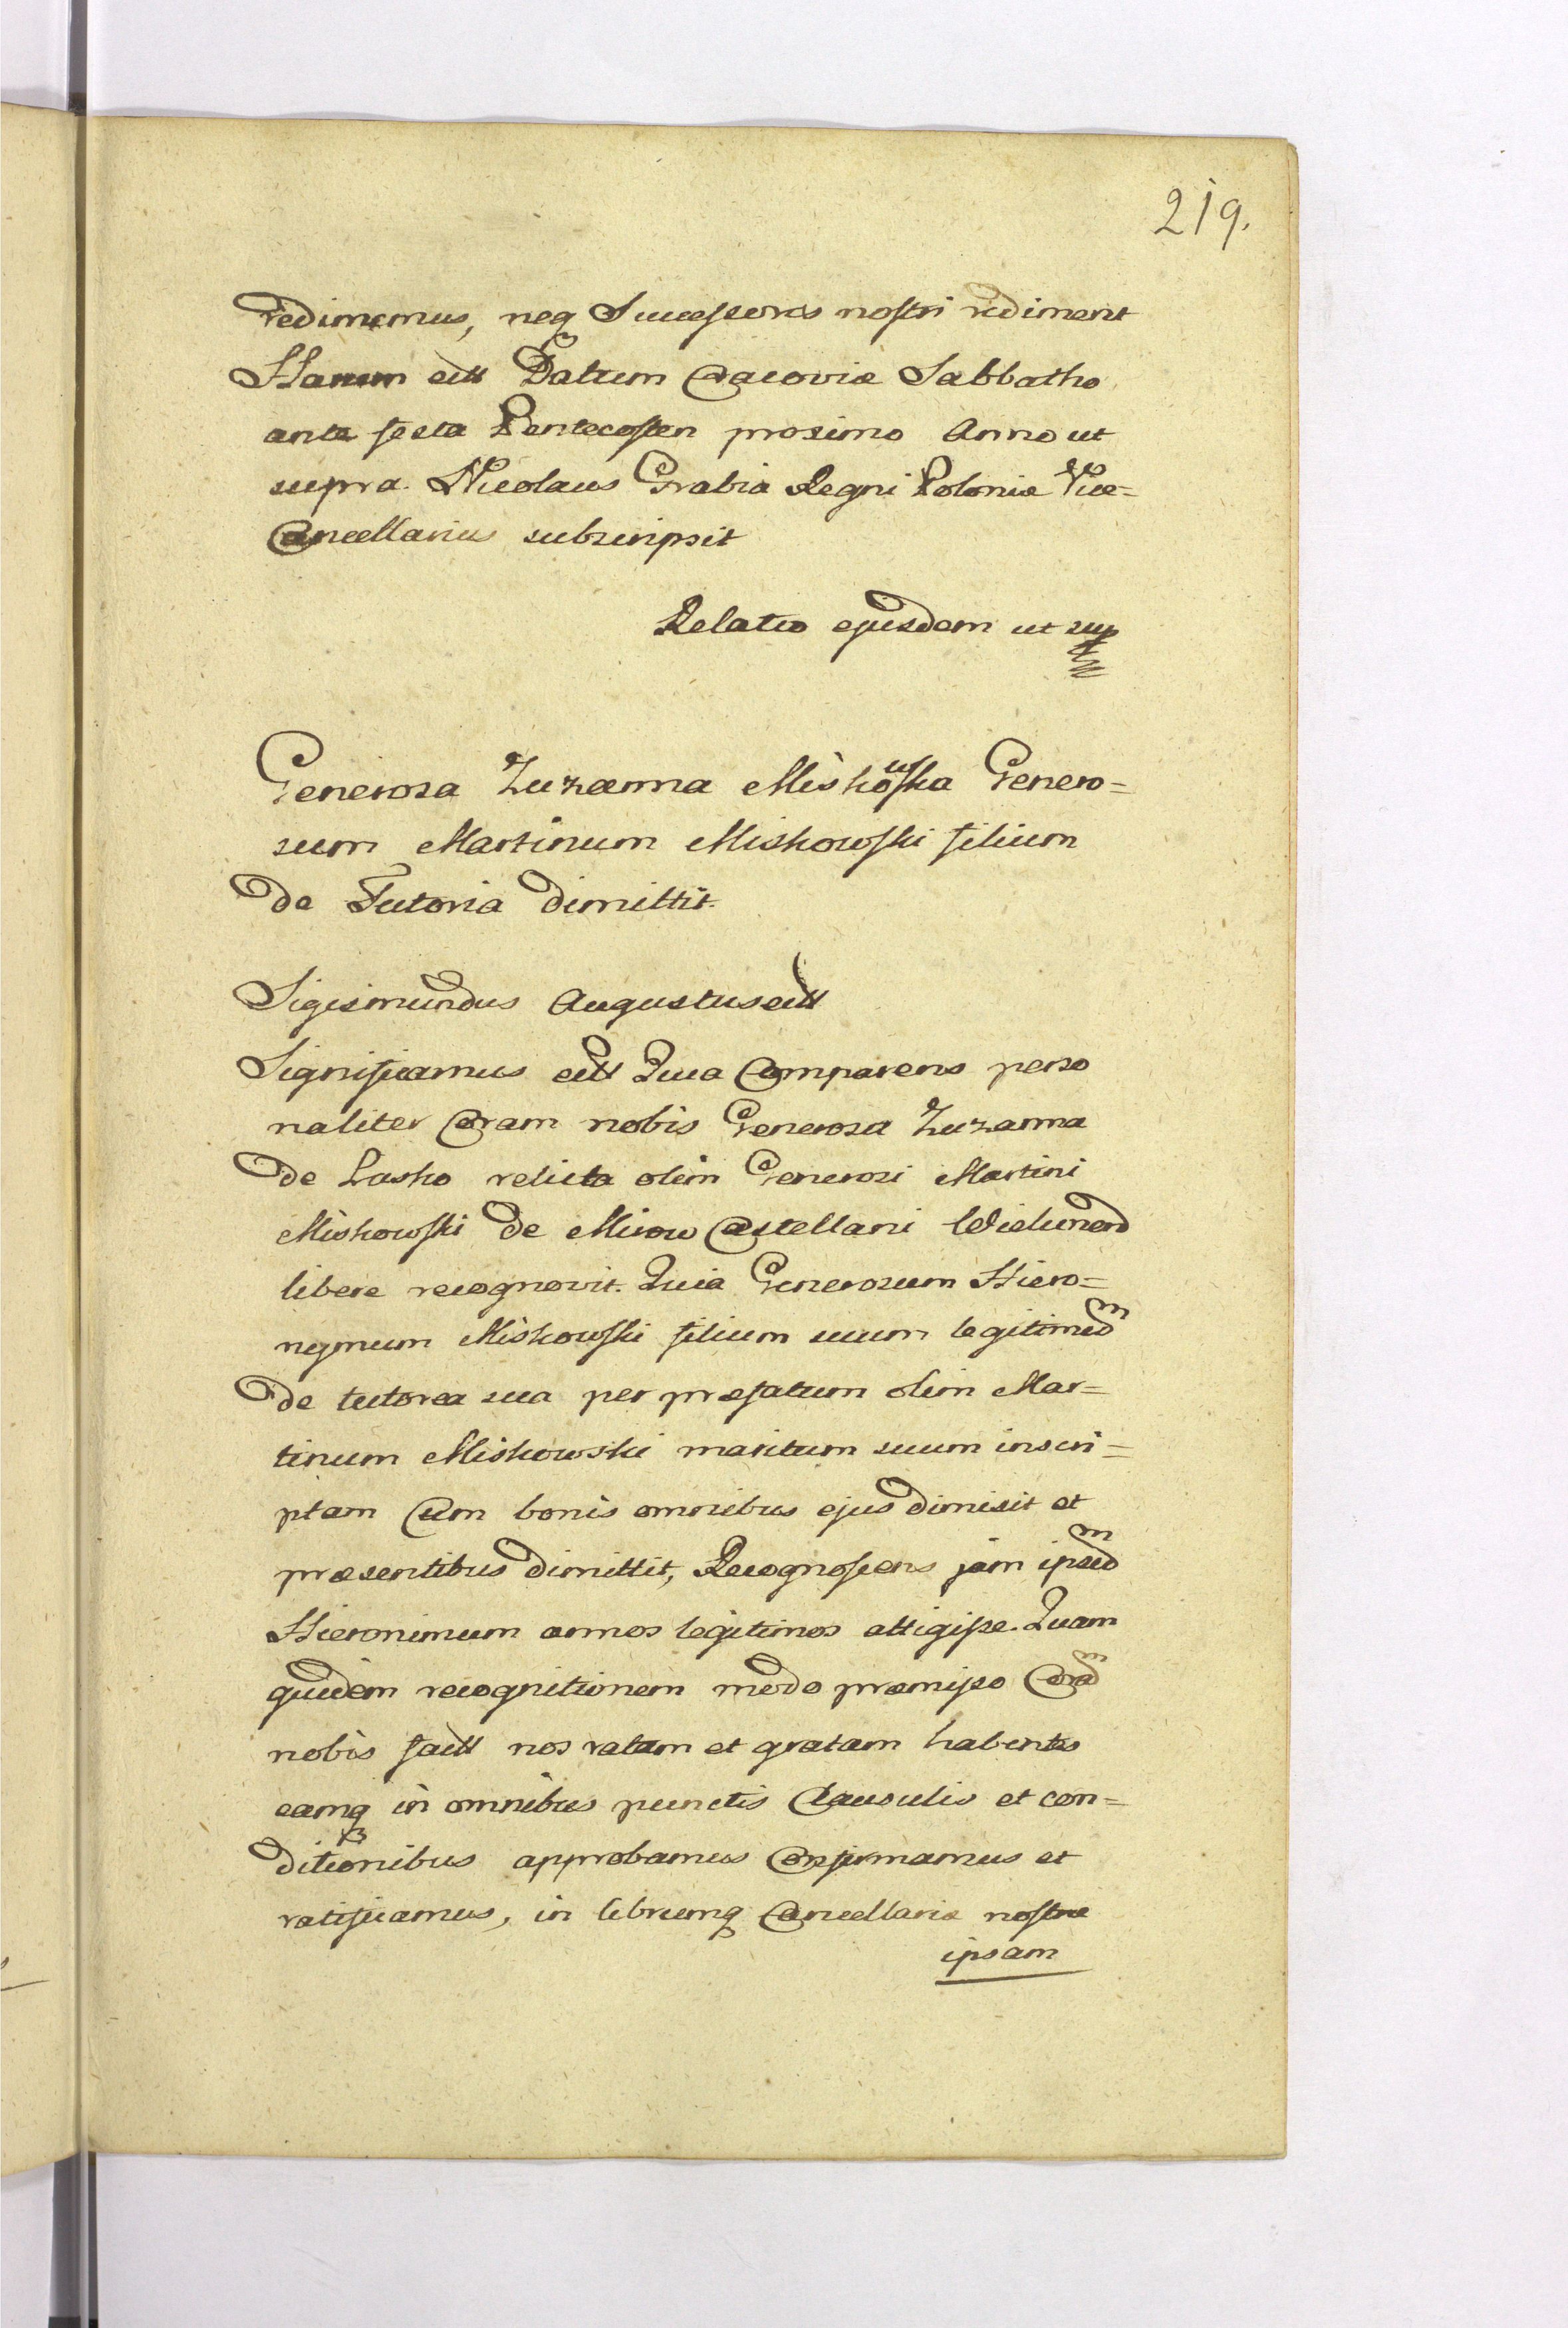 219.
redimemus, neq Successores nostri rediment
Harum ett Datum Cracoviæ Sabbatho
ante festa Pentecosten proximo Anno ut
supra. Nicolaus Grabia Regni Poloniæ Vice=
Cancellarius subscripsit
Relatio ejusdem ut sup
Generosa Zuzanna Miskowska Genero=
sum Martinum Miskowski filium
de Tutoria dimittit.
Sigismundus Augustus ett
Significamus ett Quia Comparens perso
naliter Coram nobis Generosa Zuzanna
de Lasko relicta olim Generosi Martini
Miskowski de Mirow Castellani Wielunen
libere recognovit. Quia Generosum Hiero=
nymum Miskowski filium suum legitimum
de tutorea sua per præfatum olim Mar=
tinum Miskowski maritum suum inscri=
ptam Cum bonis omnibus ejus dimisit et
præsentibus dimittit, Recognoscens jam ipsum
Hieronimum annos legitimos attigisse. Quam
quidem recognitionem modo præmisso Coram
nobis factt nos ratam et gratam habentes
eamq in omnibus punctis Clausulis et con=
ditionibus approbamus Confirmamus et
ratificamus, in librumq Cancellariæ nostræ
ipsam